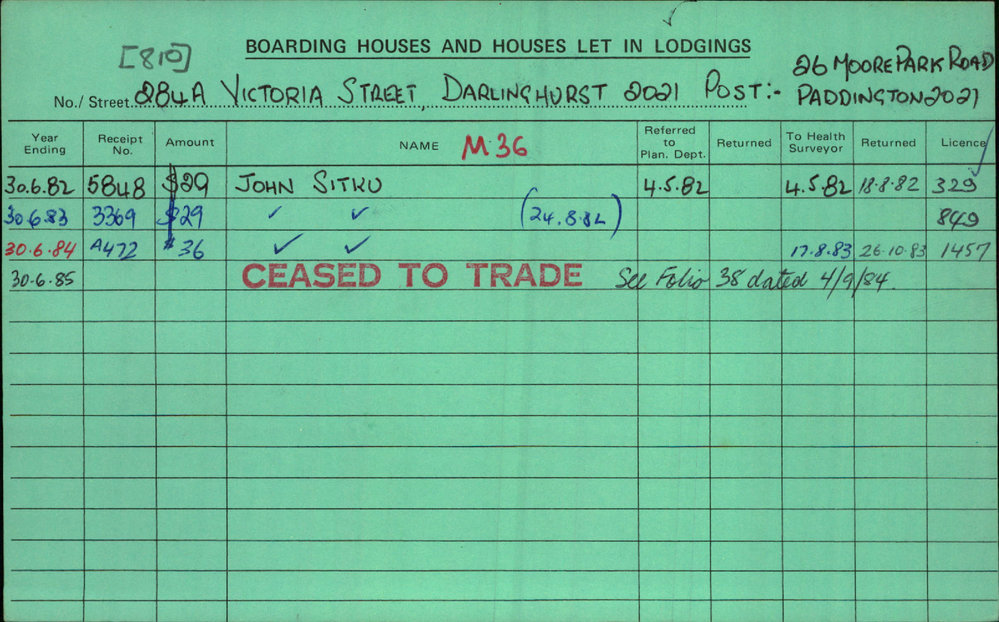 [810]
BOARDING HOUSES AND HOUSES LET IN LODGINGS
No./ Street 284A VICTORIA STREET, DARLINGHURST 2021 POST:- 26 MOORE PARK ROAD
PADDINGTON 2021
Year Ending Receipt No. Amount NAME M 36 Referred to Plan. Dept. Returned To Health Surveyor Returned Licence
30.6.82 5848 $29 JOHN SITKU 4.5.82 4.5.82 18.8.82 329
30.6.83 3369 $29 ✓ ✓ (24.8.82) 849
30.6.84 A472 $36 ✓ ✓ 17.8.83 26.10.83 1457
30.6.85 CEASED TO TRADE See Folio 38 dated 4/9/84.